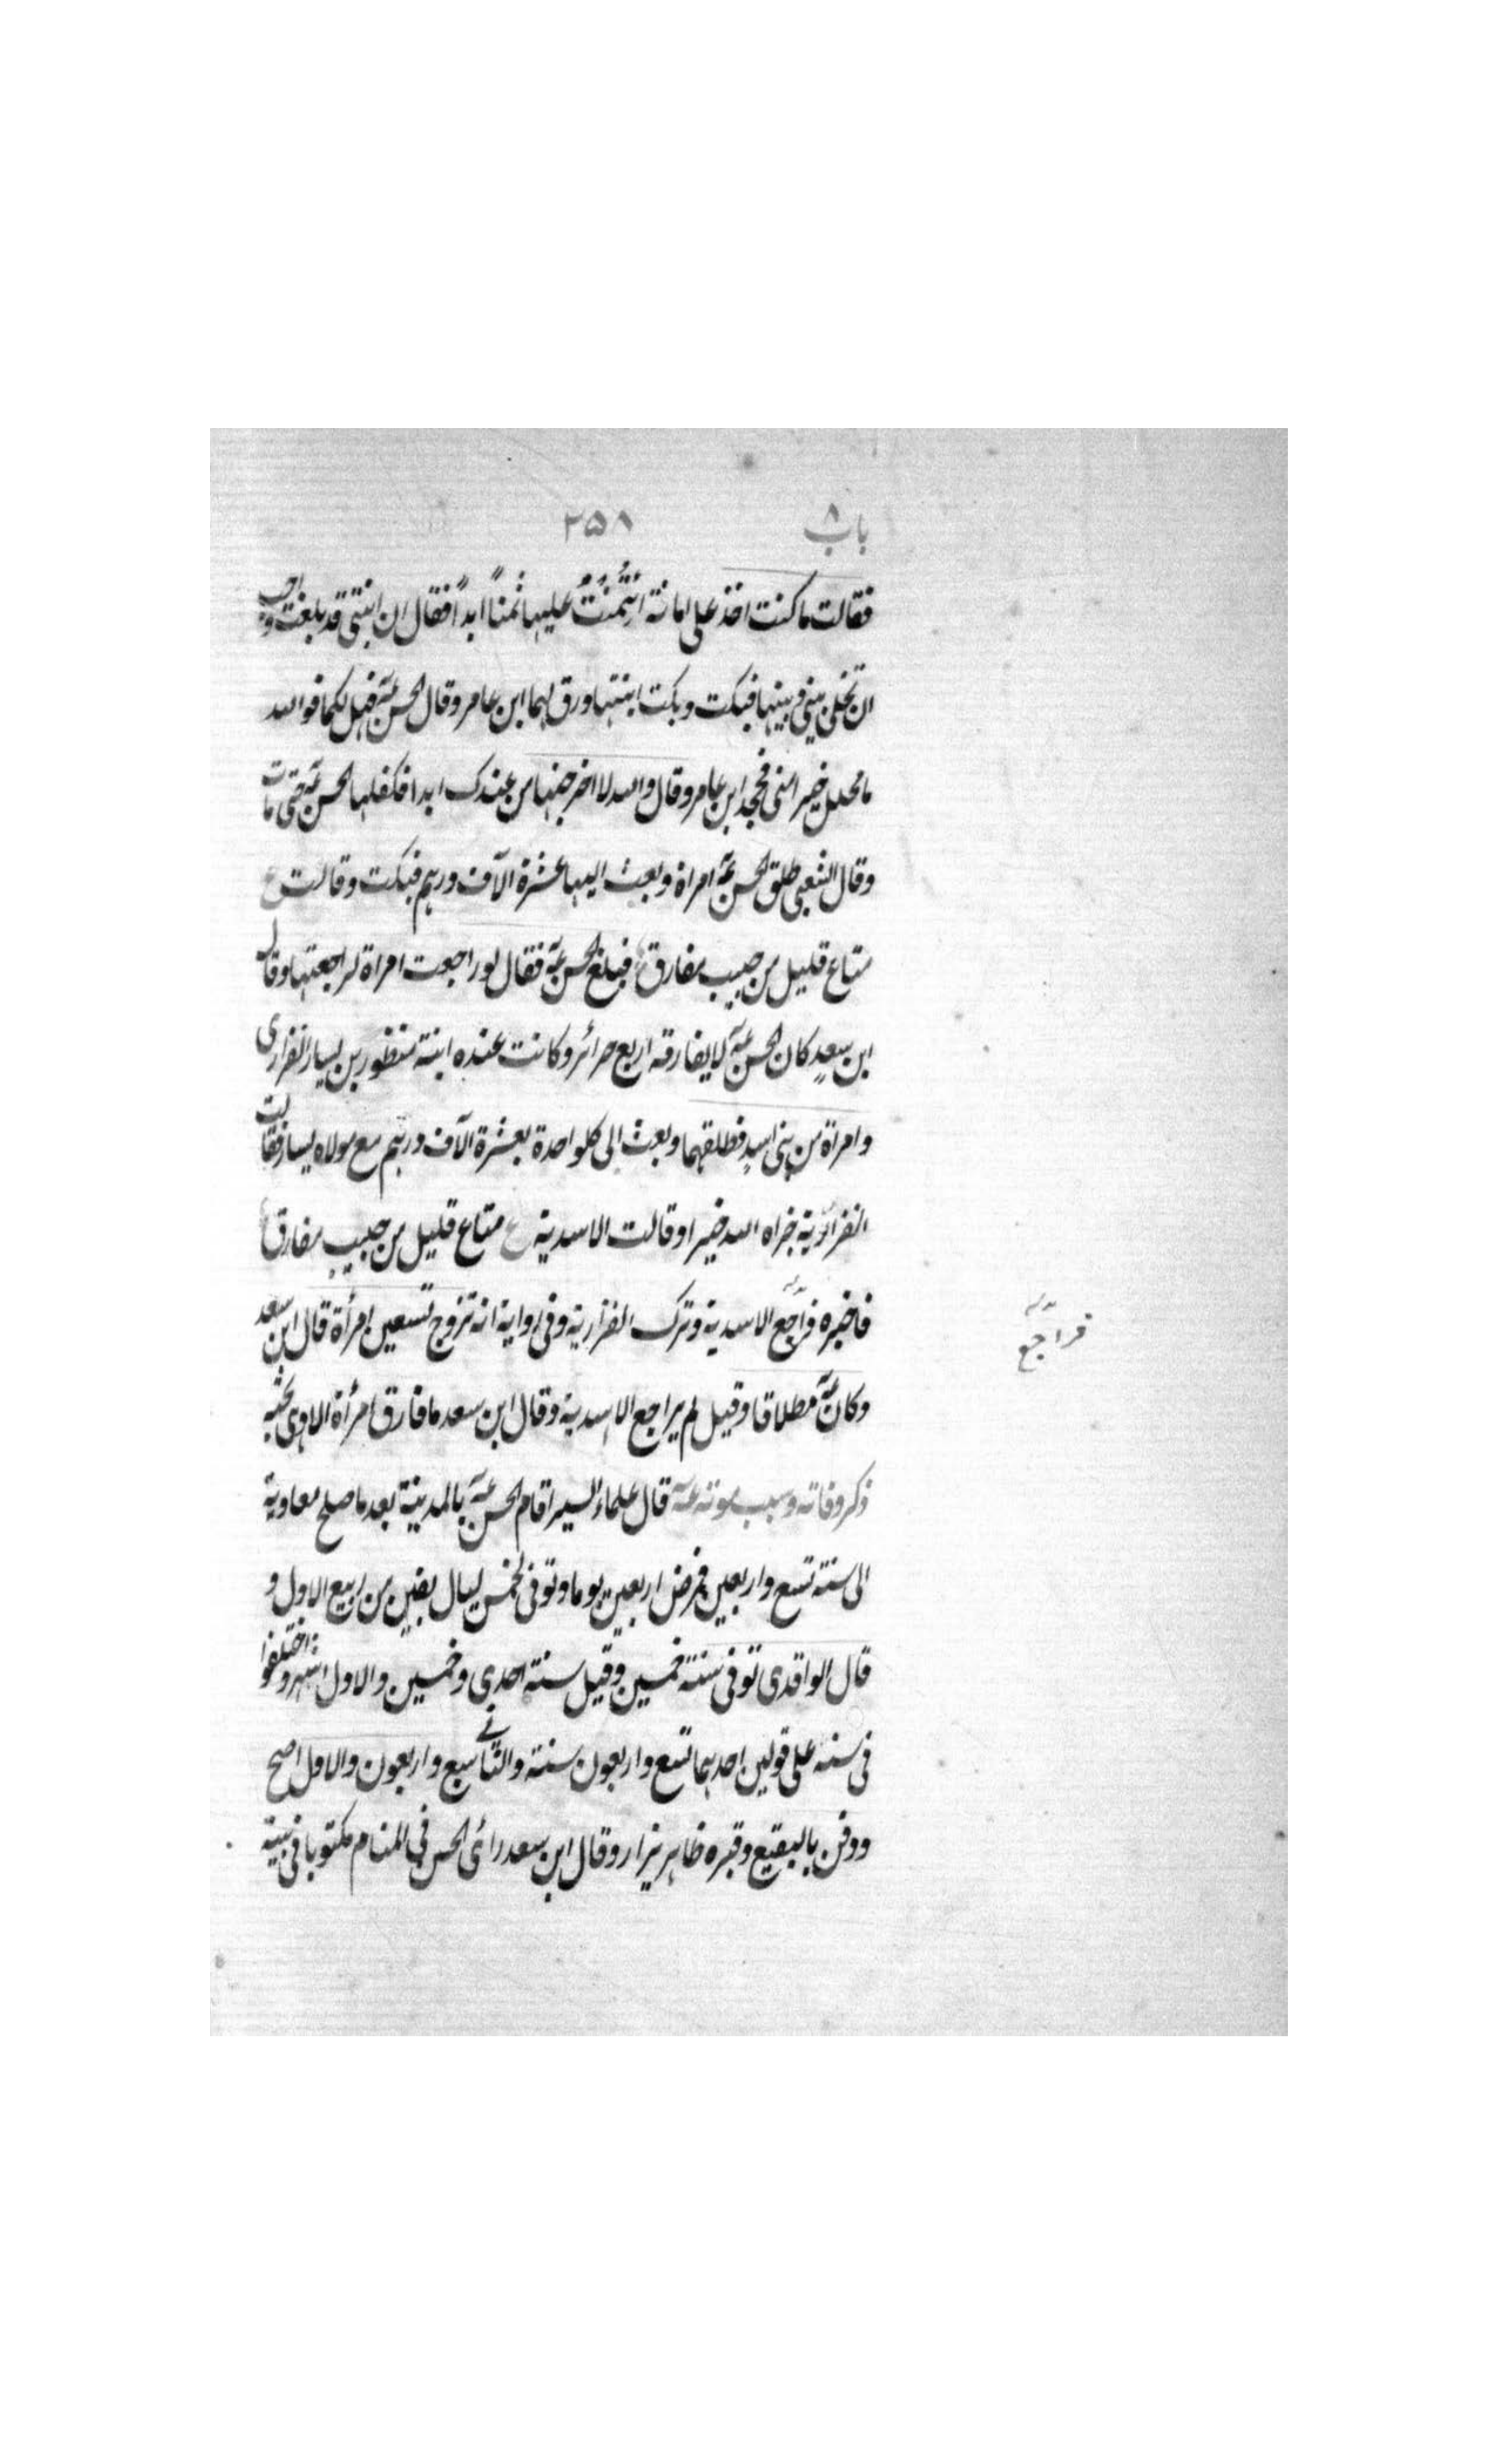 باب ٨ ٢٥٨
فقالت ما كنت اخذ على امانة ائتُمنتُ عليها ثمناً ابداً فقال ان ابنتى قد بلغت واحب
ان تخلى بينى وبينها فبكت وبكت ابنتها ورق لهما ابن عامر وقال الحسن عه فهل لكما فوالله
ما محلل خير منى فحج ابن عامر وقال والله لا اخرجنها من عندك ابدا فكفلها الحسن عه حتى مات
وقال الشعبى طلق الحسن عه امراة وبعث اليها عشرة الآف درهم فبكت وقالت ع
متاع قليل من حبيب مفارق فبلغ الحسن عه فقال لو راجعت امراة لراجعتها وقال
ابن سعد كان الحسن عه لا يفارقه اربع حرائر وكانت عنده ابنة منظور بن يسار الفزارى
وامراة من بنى اسد فطلقهما وبعث الى كلواحدة بعشرة الآف درهم مع مولاه يسار فقالت
الفزاریة جزاه الله خيرا وقالت الاسدية ع متاع قليل من حبيب مفارق
فاخبره فراجع الاسدية وترك الفزارية وفى رواية انه تزوج تسعين امرأة قال ابن سعد
فراجع
وكان عه مطلاقا وقيل لم يراجع الاسدية وقال ابن سعد ما فارق امرأة الا وهى تحبه
ذكر وفاته وسبب موته عه قال علماء السير اقام الحسن عه بالمدينة بعد ما صلح معاوية
الى سنة تسع واربعين فمرض اربعين يوما وتوفى لخمس ليال بقين من ربيع الاول و
قال الواقدى توفى سنة خمسين وقيل سنة احدى وخمسين والاول اشهر واختلفوا
فى سنه على قولين احدهما تسع واربعون سنة والثانے سبع واربعون والاول اصح
ودفن بالبقيع وقبره ظاهر يزار وقال ابن سعد رائ الحسن فى المنام مكتوبا فى